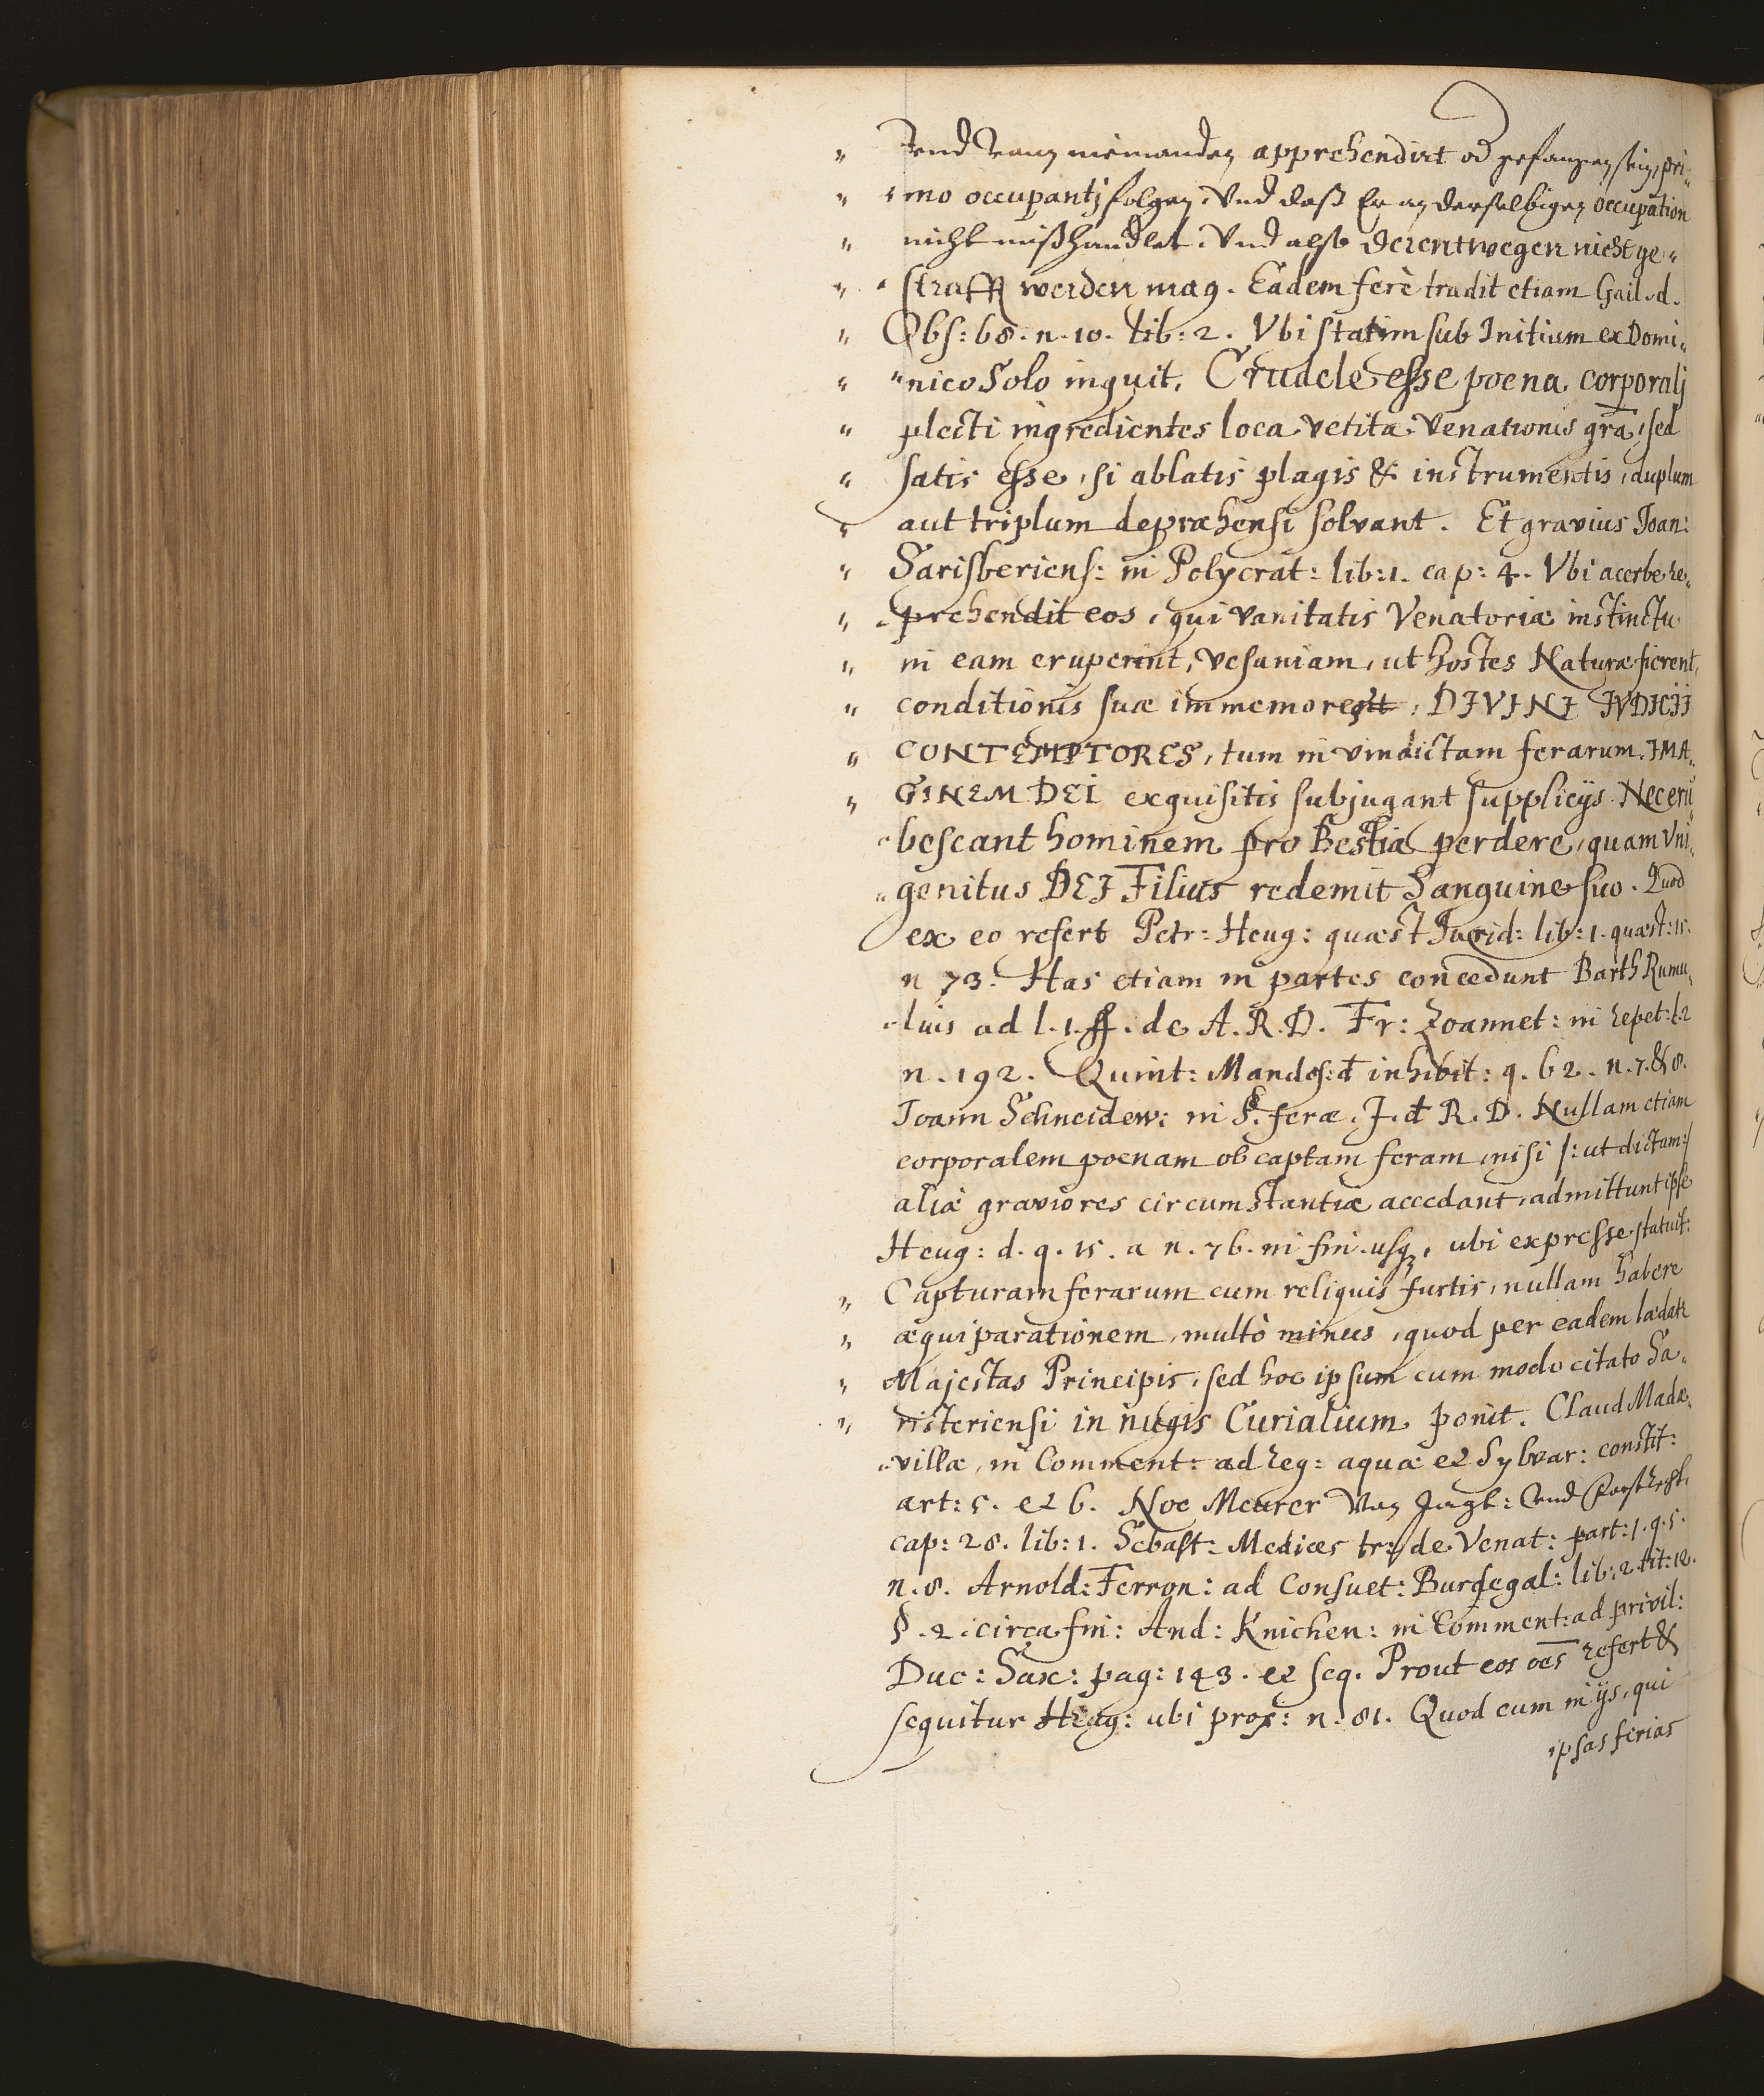 " und von niemanden apprehendirt od gefangen sein, pri„
" mo occupantj folgen, Vnd daß Er an derselbigen occupation
" nicht mißhandlet, Vnd alß derentwegen nicht ge„
" strafft werden mag. Eadem ferè tradit etiam Gail. d.
" Obs: 68. n. 10. lib: 2. Vbi statim sub Initium ex Domi„
" nico Solo inquit, Crudele esse poena corporalj
" plecti ingredientes loca vetita Venationis gra͞, sed
" satis esse, si ablatis plagis & instrumentis, duplum
" aut triplum depræhensi solvant. Et gravius Joan:
" Sarisberiens: in Polycrat: lib: 1. cap: 4. Vbi acerbe re„
" prehendit eos, qui vanitatis Venatoriæ instinctu
" in eam eruperint, vesaniam, ut hostes Naturæ fierent,
" conditionis suæ immemores, DIVINI IVDICIJ
" CONTEMPTORES, tum in vindictam ferarum, IMA„
" GINEM DEI exquisitis subjugant supplicijs. Nec eru„
bescant hominem pro Bestia perdere, quam Vni„
genitus DEI Filius redemit Sanguine suo. Quod
ex eo refert Petr: Heug: quæst Jurid: lib: 1. quæst: 15.
n 73. Has etiam in partes concedunt Barth Rumu„
lus ad l. 1. ff. de A. R. D. Fr: Zoannet: in repet: l. 2
n. 192. Quint: Mandos: d inhibit: q. 62. n. 7. & 8.
Joann Schneidew: in §. feræ. J. d R. D. Nullam etiam
corporalem poenam ob captam feram, nisi /: ut dictum :/
aliæ graviores circumstantiæ accedant, admittunt ipse
Heug: d. q. 15. a n. 76. in fin. usq;, ubi expresse statuit:
" Capturam ferarum cum reliquis furtis, nullam habere
" æquiparationem, multò minus, quod per eadem lædatr
" Majestas Principis, sed hoc ipsum cum modo citato Sa„
" risteriensi in nugis Curialium ponit. Claud Madæ„
villæ, in Comment: ad reg: aquæ et Sylvar: constit:
art: 5. et 6. Noe Meurer Von Jagt: Vnd Forstrecht,
cap: 28. lib: 1. Sebast: Medices tr: de Venat: part: 1. q. 5.
n. 8. Arnold: Ferron: ad Consuet: Burdegal: lib: 2. tit: 12.
§. 2. circa fin: And: Knichen: in Comment: ad privil:
Duc: Sax: pag: 143. et seq. Prout eos oēs refert &
sequitur Heug: ubi prox: n. 81. Quod cum in ijs, qui
ipsas ferias